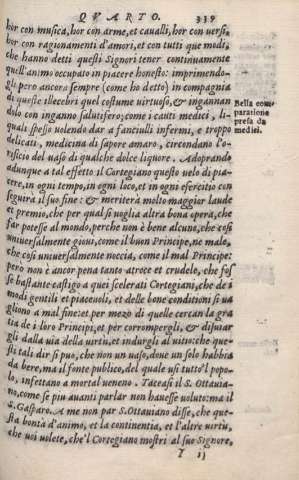 QVARTO. 339
hor con musica, hor con arme, et caualli, hor con uersi,
hor con ragionamenti d'amori, et con tutti que modi,
che hanno detti questi Signori tener continuamente
quell'animo occupato in piacere honesto: imprimendo-
gli pero ancora sempre (come ho detto) in compagnia
di queste illecebri quel costume virtuoso, & ingannan
dolo con inganno salutifero; come i cauti medici, li-
quali spesso uolendo dar a fanciulli infermi, e troppo
delicati, medicina di sapore amaro, circondano l'o-
rificio del uaso di qualche dolce liquore. Adoprando
adunque a tal effetto il Cortegiano questo uelo di pia-
cere, in ogni tempo, in ogni loco, et in ogni esercitio con
seguira il suo fine: & meriterà molto maggior laude
et premio, che per qual si voglia altra bona opera, che
far potesse al mondo, perche non è bene alcuno, che cosi
uniuersalmente gioui, come il buon Principe, ne male,
che cosi uniuersalmente noccia, come il mal Principe:
però non è ancor pena tanto atroce et crudele, che fos
se bastante castigo a quei scelerati Cortegiani, che de i
modi gentili et piaceuoli, et delle bone conditioni si ua
gliono a mal fine: et per mezo di quelle cercan la gra
tia de i loro Principi, et per corrompergli, & disuiar
gli dalla via della virtu, et indurgli al vitio: che que-
sti tali dir si puo, che non un uaso, doue un solo habbia
da bere, ma il fonte publico, del quale usi tutto'l popo-
lo, infettano a mortal ueneno. Taceasi il S. Ottauia-
no, come se piu auanti parlar non hauesse voluto: ma il
S. Gasparo. A me non par S. Ottauiano disse, che que-
sta bontà d'animo, et la continentia, et l'altre virtù,
che uoi uolete, che'l Cortegiano mostri al suo Signore,
Y ij
Bella com
paratione
presa da
medici.